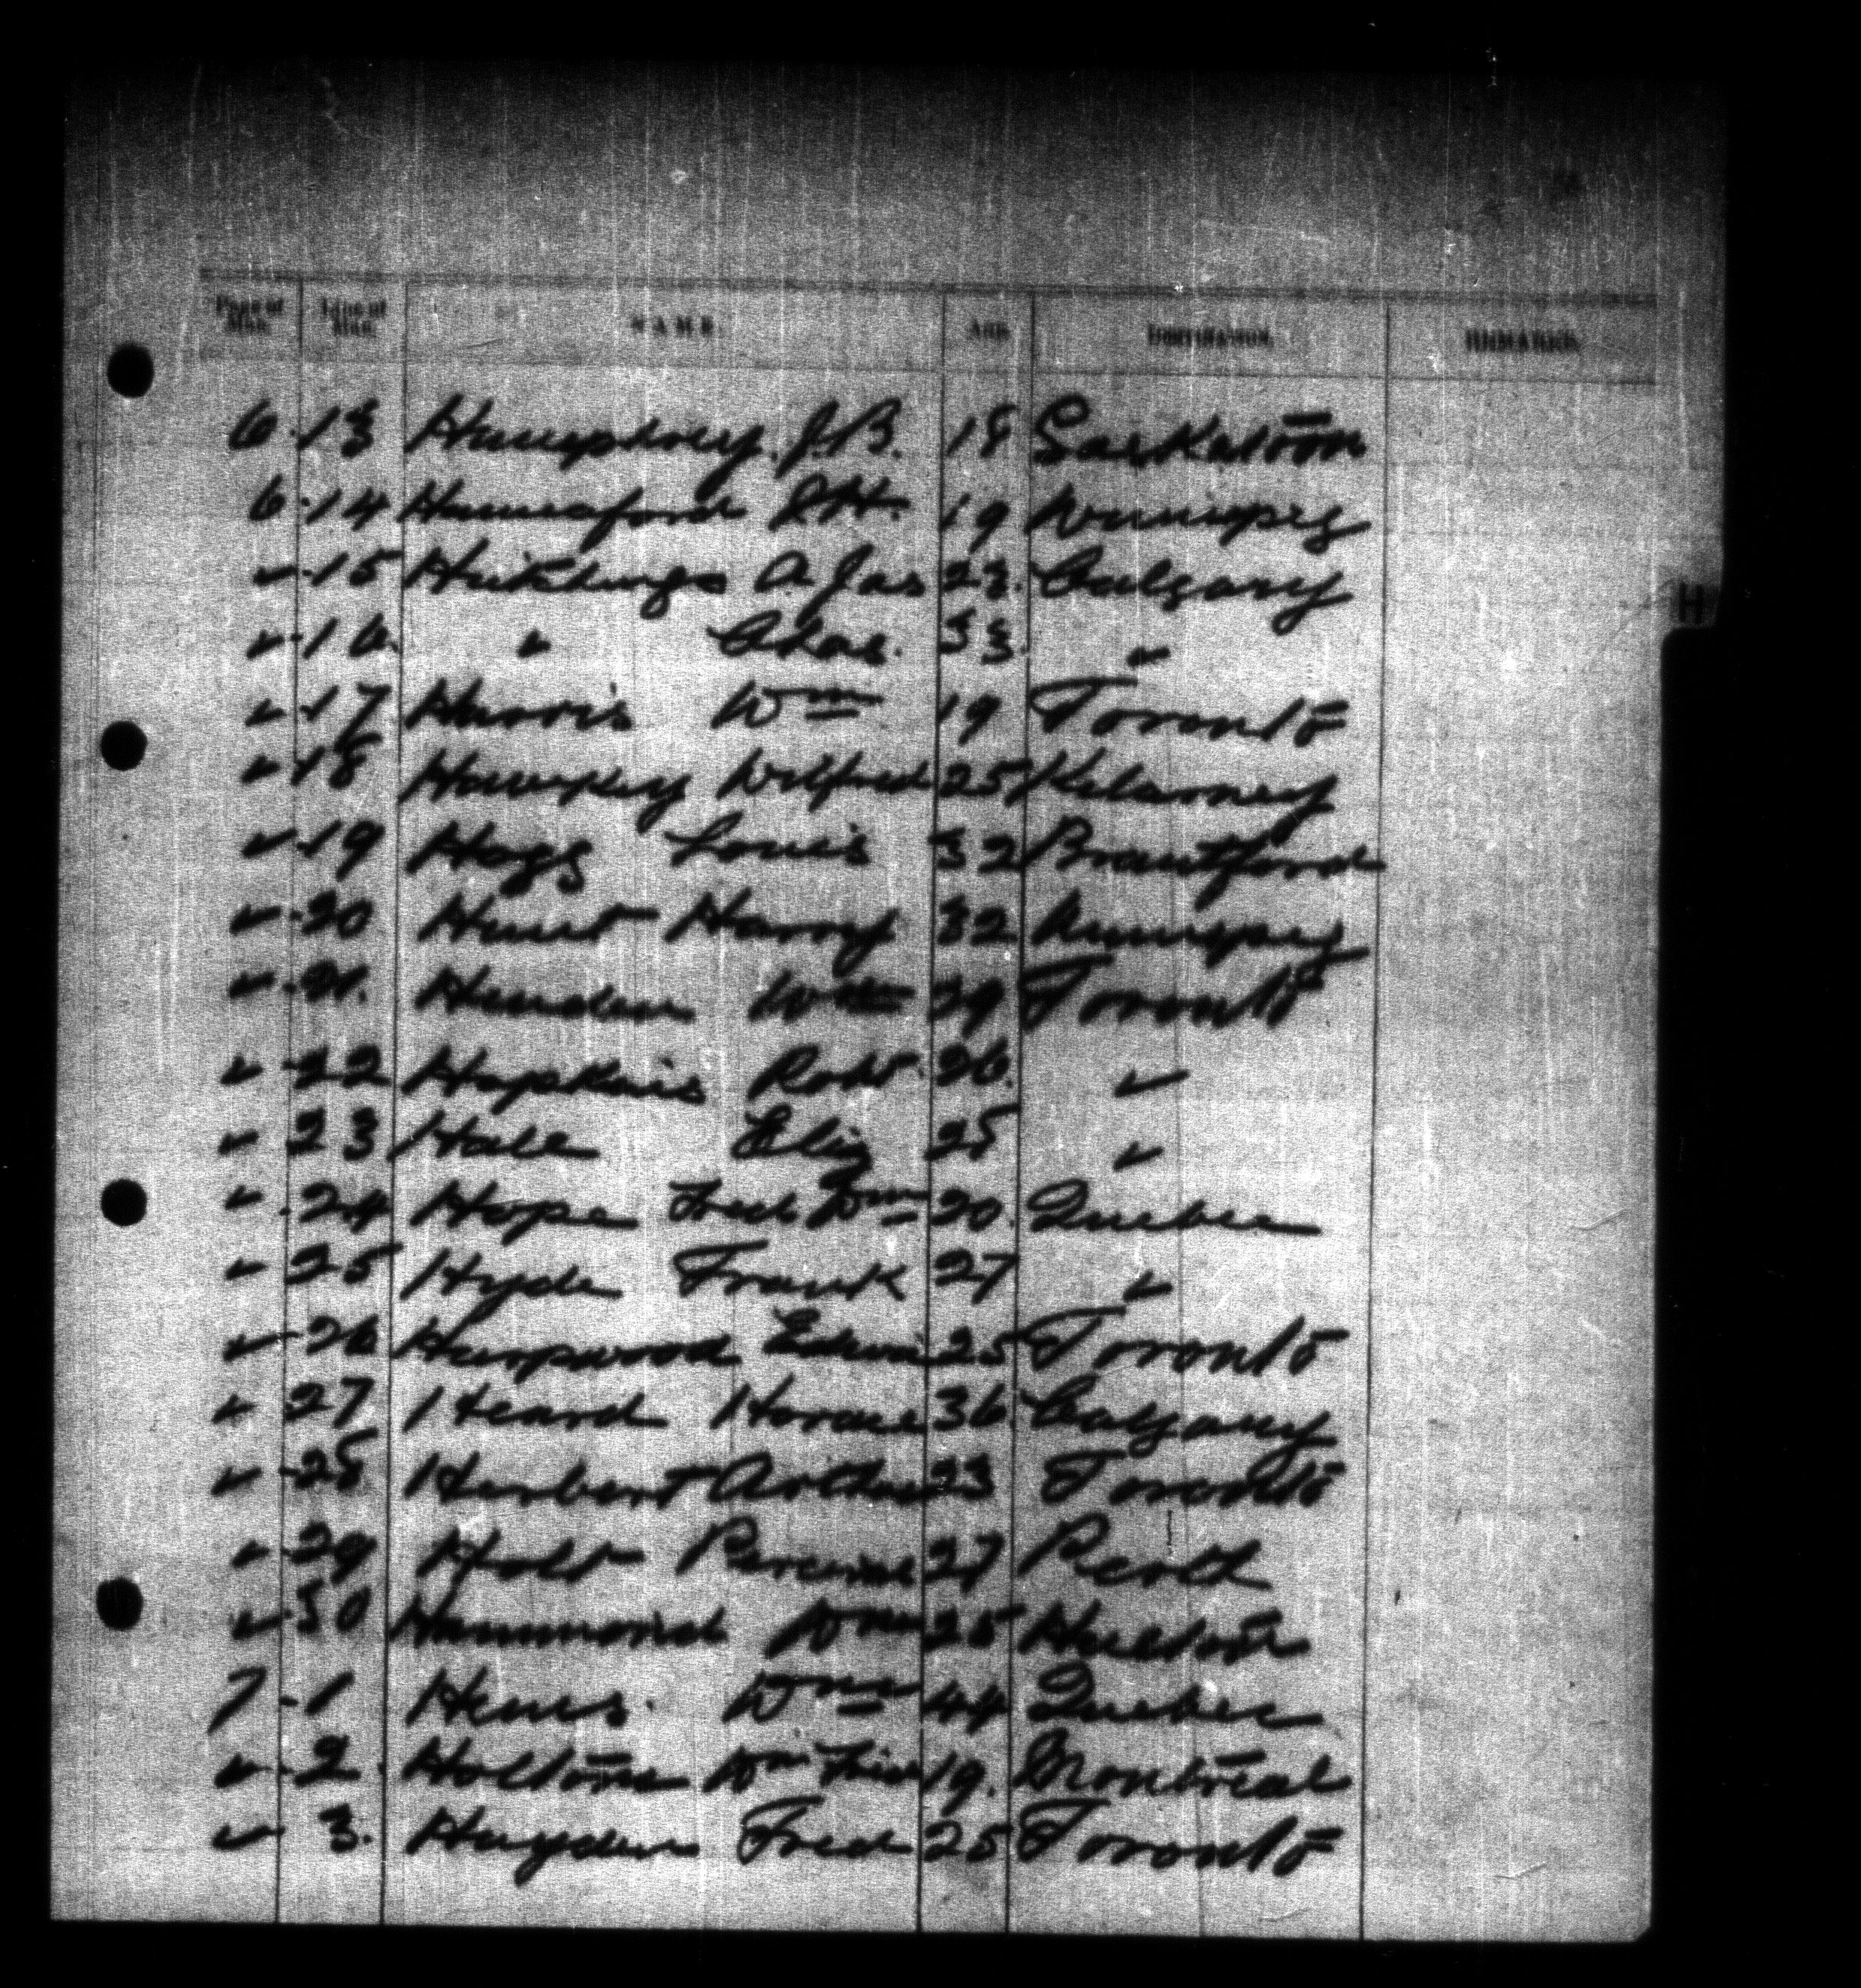 Page of Man. Line of Man. NAME. AGE DESTINATION. REMARKS.
6 13 Humphrey J.B. 18 Saskatoon
6 14 Hannaford J.H. 19 Winnipeg
" 15 A. Jas 23 Calgary
" 16 " Chas. 33 "
" 17 Harris Wm 19 Toronto
" 18 Wilfred 25 Kelarney
" 19 Hogg Louis 32 Brantford
" 20 Hunt Harry 32 Winnipeg
" 21 Wm 29 Toronto
" 22 Hopkins Robt. 26 "
" 23 Hale Eliz 25 "
" 24 Hope Fred Wm 20 Quebec
" 25 Hyde Frank 27 "
" 26 Harpwood Edwin 25 Toronto
" 27 Heard Horace 36 Calgary
" 28 Herbert Arthur 23 Toronto
" 29 Holt Percival 27 Perth
" 30 Hammond Wm 25
7 1 Wm 44 Quebec
" 2 Wm 19. Montreal
" 3. Hayden Fred 25 Toronto
H